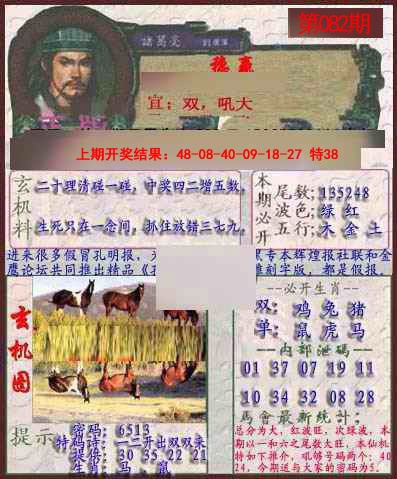 第082期
諸葛亮
穩 赢
宜：双，吼大
上期开奖结果：48-08-40-09-18-27 特38
玄机料
二十理清碰一碰，中奖四二增五数，
生死只在一念间，抓住放错三七九，
本期必开
尾数；135248
波色；绿 红
五行；木 金 土
进来很多假冒孔明报，
黑专本辉煌报社联和金
鹰论坛共同推出精品
雕刻字版，都是假报，
玄机图
--必开生肖--
双：鸡 兔 猪
单：鼠 虎 马
--内部泄码--
01 37 07 19 11
10 34 32 08 28
馬會最新統计：
总分为大，红波旺，次绿波，本
期以一和六之尾数大旺，本仙机
特如下推介，吼够号码两个：40
24，今期送与大家的密码为5．
提示
密码：6513
特码诗：一二开出双双来
提供：30 35 22 21
生肖：马．鼠